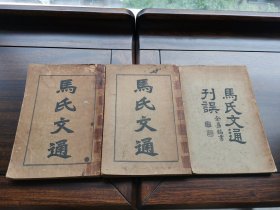 馬氏文通
馬氏文通
馬氏文通
刊誤